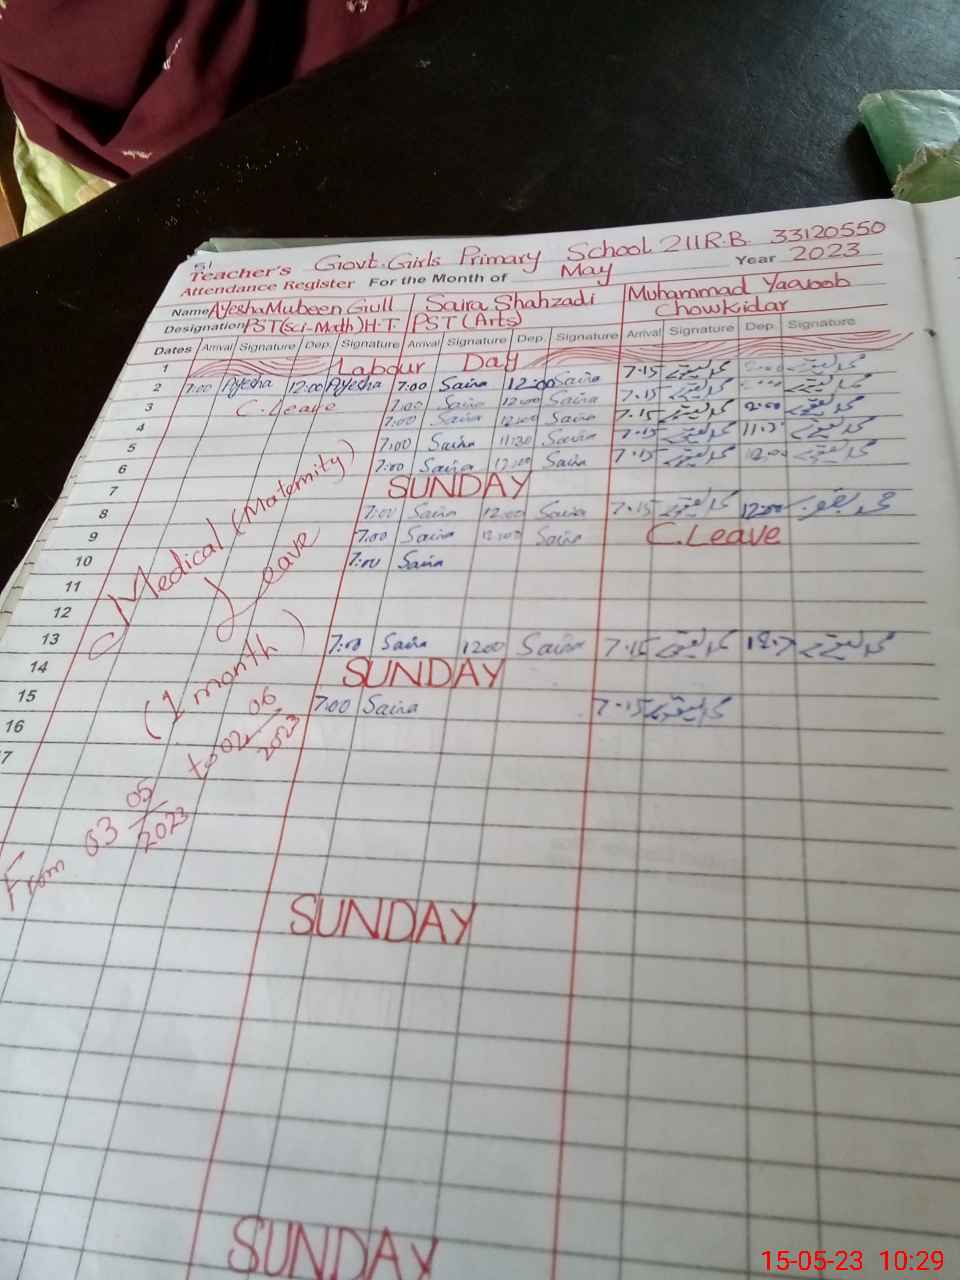 51
Teacher's Govt. Girls Primary School 211 R.B. 33120550
Attendance Register For the Month of May Year 2023
Name Ayesha Mubeen Giull Saira Shahzadi Muhammad Yaqoob
Designation PST(Sci-Math)H.T. PST (Arts) Chowkidar
Dates Arrival Signature Dep. Signature Arrival Signature Dep. Signature Arrival Signature Dep. Signature
1 Labour Day
2 7:00 Ayesha 12:00 Ayesha 7:00 Saira 12:00 Saira 7.15
3 C.Leave 7:00 Saira 12:00 Saira 7.15
4 7:00 Saira 12:00 Saira 7.15
5 7:00 Saira 11:30 Saira 7.15
6 7:00 Saira 12:00 Saira 7.15
7 SUNDAY
8 7:00 Saira 12:00 Saira 7.15 12:00
9 7:00 Saira 12:00 Saira C.Leave
10 7:00 Saira
11
12
13 7:00 Saira 12:00 Saira 7.15
14 SUNDAY
15 7:00 Saira 7.15
16
17
Medical (Maternity)
Leave
(1 month)
From 03 05/2023 to 02 06/2023
SUNDAY
SUNDAY
15-05-23 10:29